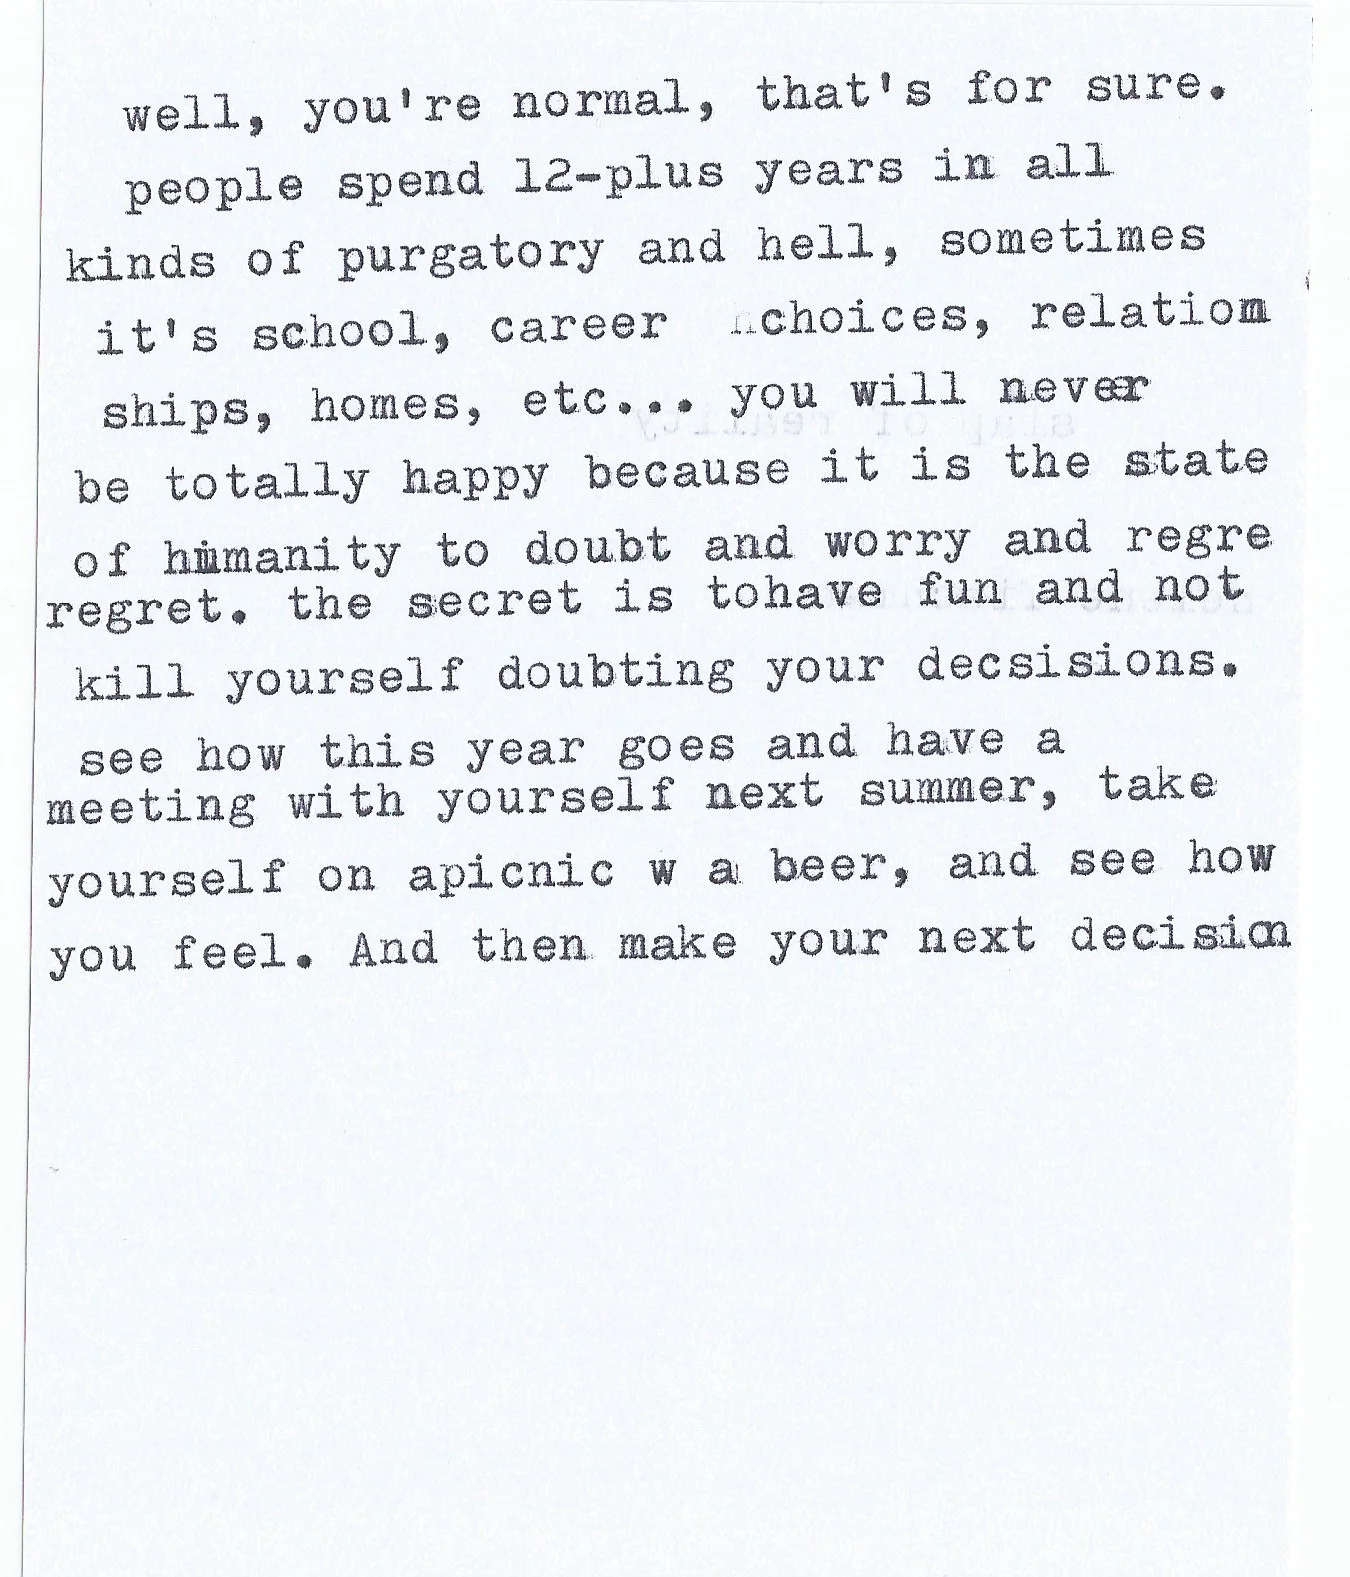 well, you're normal, that's for sure.
people spend 12-plus years in all
kinds of purgatory and hell, sometimes
it's school, career choices, relation
ships, homes, etc... you will never
be totally happy because it is the state
of humanity to doubt and worry and regre
regret. the secret is tohave fun and not
kill yourself doubting your decsisions.
see how this year goes and have a
meeting with yourself next summer, take
yourself on apicnic w a beer, and see how
you feel. And then make your next decision